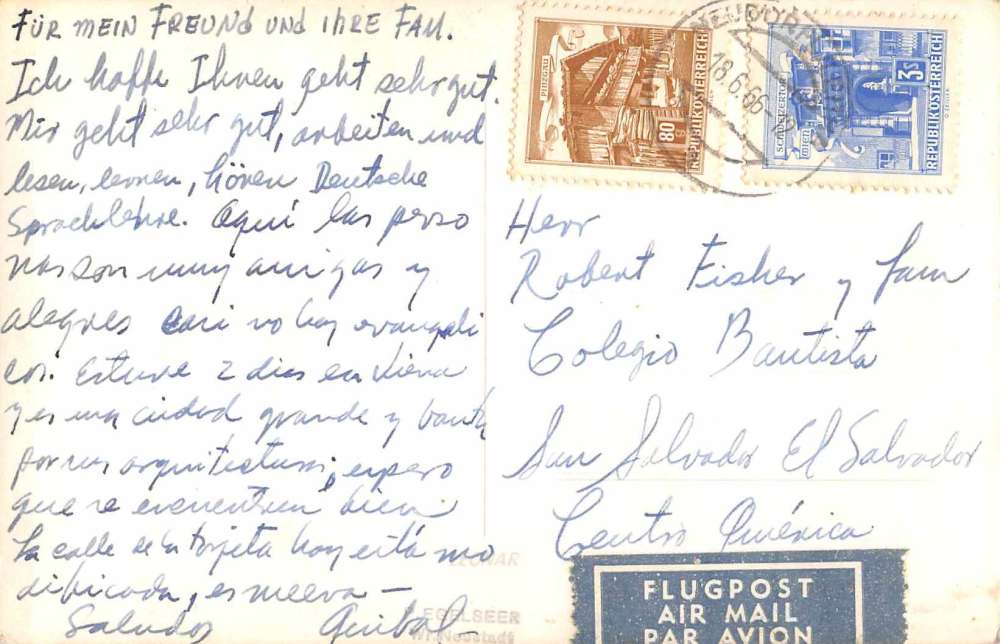 FÜR MEIN FREUND UND IHRE FAM.
Ich hoffe Ihnen geht sehr gut.
Mir geht sehr gut, arbeiten und
lesen, lernen, hören Deutsche
Sprachlehre. Aqui las perso
nas son muy amigas y
alegres casi no hay evangeli
cos. Estuve 2 dias en Viena
y es una ciudad grande y bonita
por sus arquitecturas; espero
que se encuentren bien
La calle de la tarjeta hoy está mo
dificada, es nueva —
Saludos Anibal
PILLERSEE
80 g
REPUBLIK ÖSTERREICH
NEUDÖRFL
18.6.66
SCHWEIZERTOR
WIEN
3S
REPUBLIK ÖSTERREICH
Herr
Robert Fisher y fam
Colegio Bautista
San Salvador El Salvador
Centro América
LEONAR
EGELSEER
Wr. Neustadt
FLUGPOST
AIR MAIL
PAR AVION